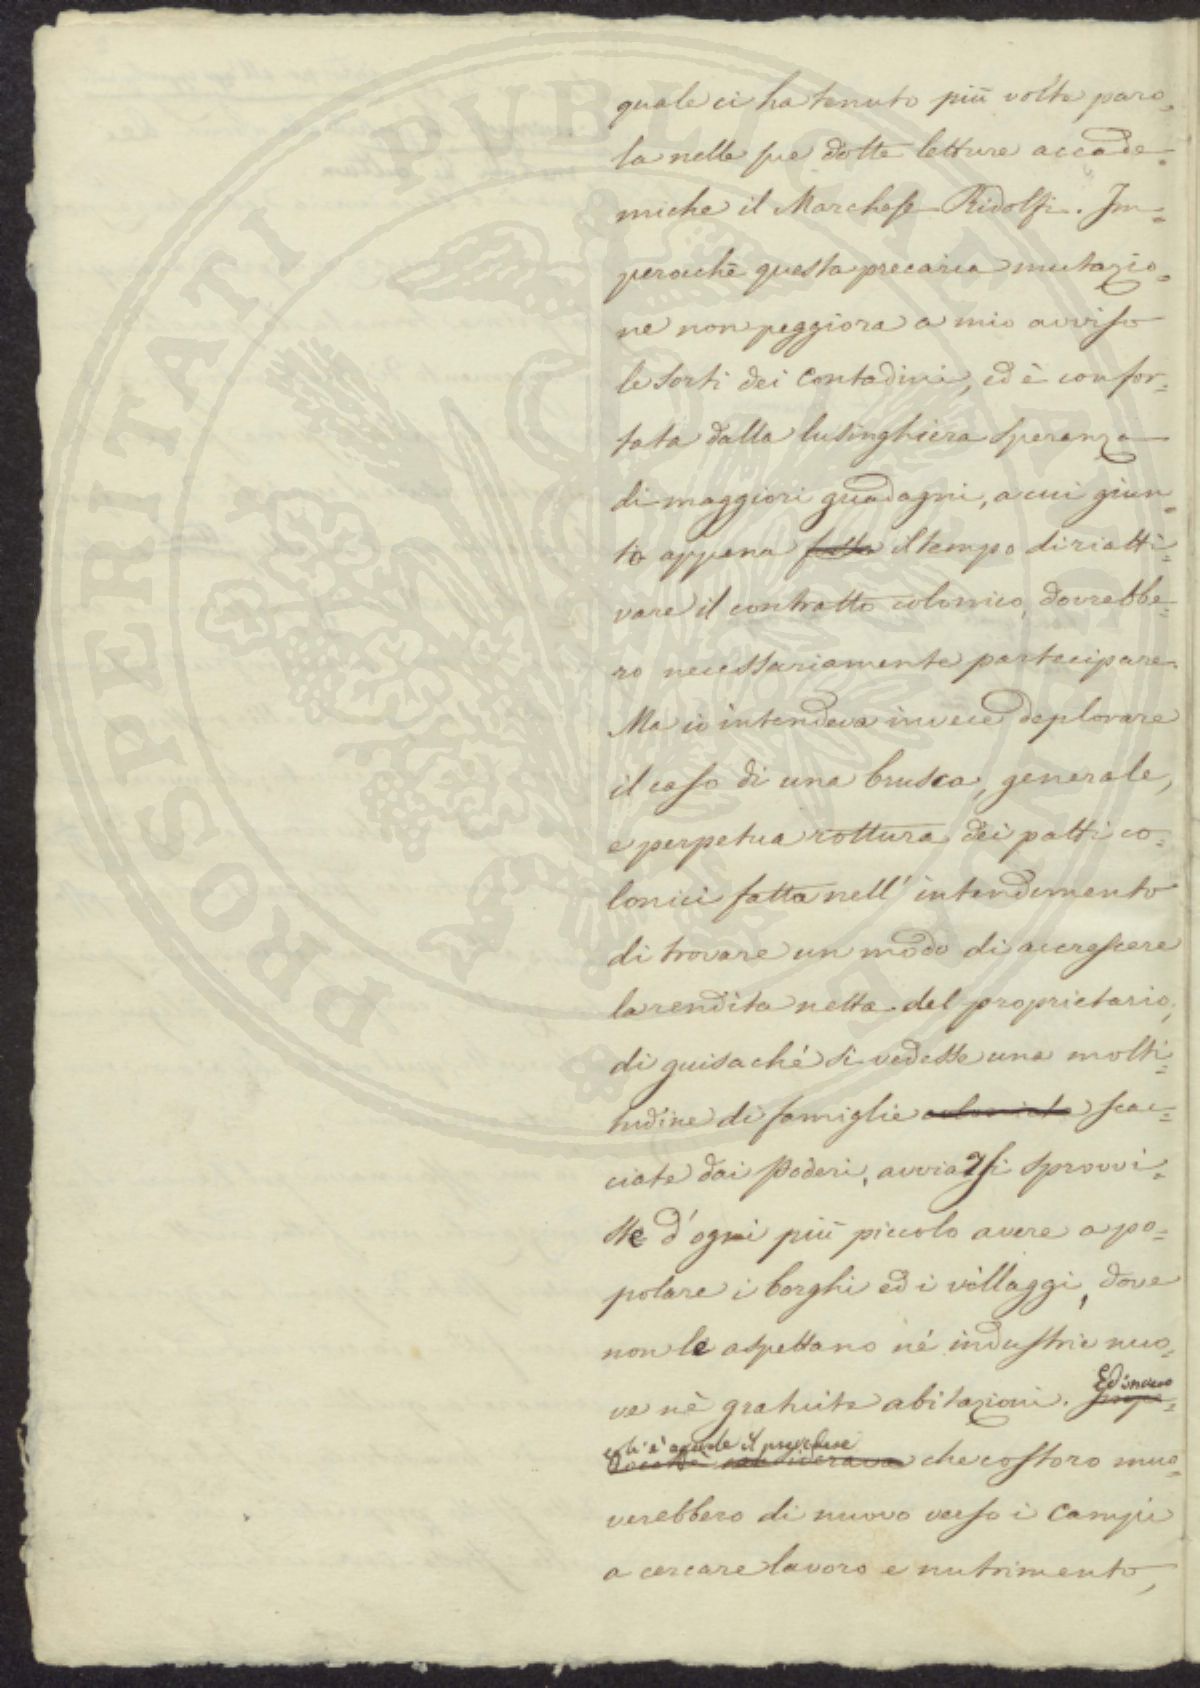 PROSPERITATI PUBLICAE AUGENDAE
quale ci ha tenuto più volte paro=
la nelle sue dotte letture accade=
miche il Marchese Ridolfi. Im=
perocchè questa precaria mutazio=
ne non peggiora a mio avviso
le sorti dei Contadini, ed è confor=
tata dalla lusinghiera speranza
di maggiori guadagni, a cui giun=
to appena fatto il tempo di riatti=
vare il contratto colonico, dovrebbe=
ro necessariamente partecipare.
Ma io intendeva invece deplorare
il caso di una brusca, generale,
e perpetua rottura dei patti co=
lonici fatta nell' intendimento
di trovare un modo di accrescere
la rendita netta del proprietario,
di guisaché si vedesse una molti=
tudine di famiglie scac=
ciate dai Poderi, avviarsi sprovvi=
ste d'ogni più piccolo avere a po=
polare i borghi ed i villaggi, dove
non le aspettano nè industrie nuo=
ve nè gratuite abitazioni. Ed invero
è agevole il prevedere che costoro muo=
verebbero di nuovo verso i Campi
a cercare lavoro e nutrimento,